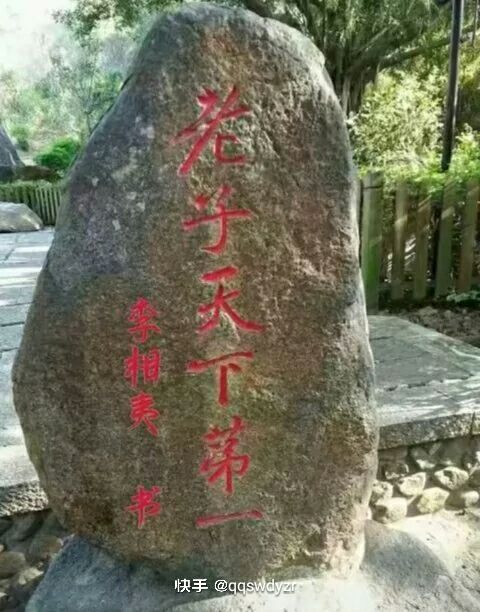 老子天下第一
李相夷 书
快手 @qqswdyzr